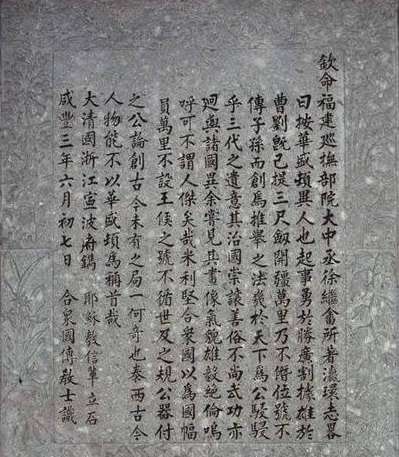 欽命福建巡撫部院大中丞徐繼畬所著瀛環志畧
曰按華盛頓異人也起事勇於勝廣割據雄於
曹劉旣已提三尺劍開疆萬里乃不僭位號不
傳子孫而創爲推舉之法幾於天下爲公駸駸
乎三代之遺意其治國崇讓善俗不尚武功亦
迥與諸國異余嘗見其畫像氣貌雄毅絕倫嗚
呼可不謂人傑矣哉米利堅合衆國以爲國幅
員萬里不設王侯之號不循世及之規公器付
之公論創古今未有之局一何奇也泰西古今
人物能不以華盛頓爲稱首哉
大清國浙江寧波府鐫 耶穌敎信輩立石
咸豐三年六月初七日 合衆國傳敎士識